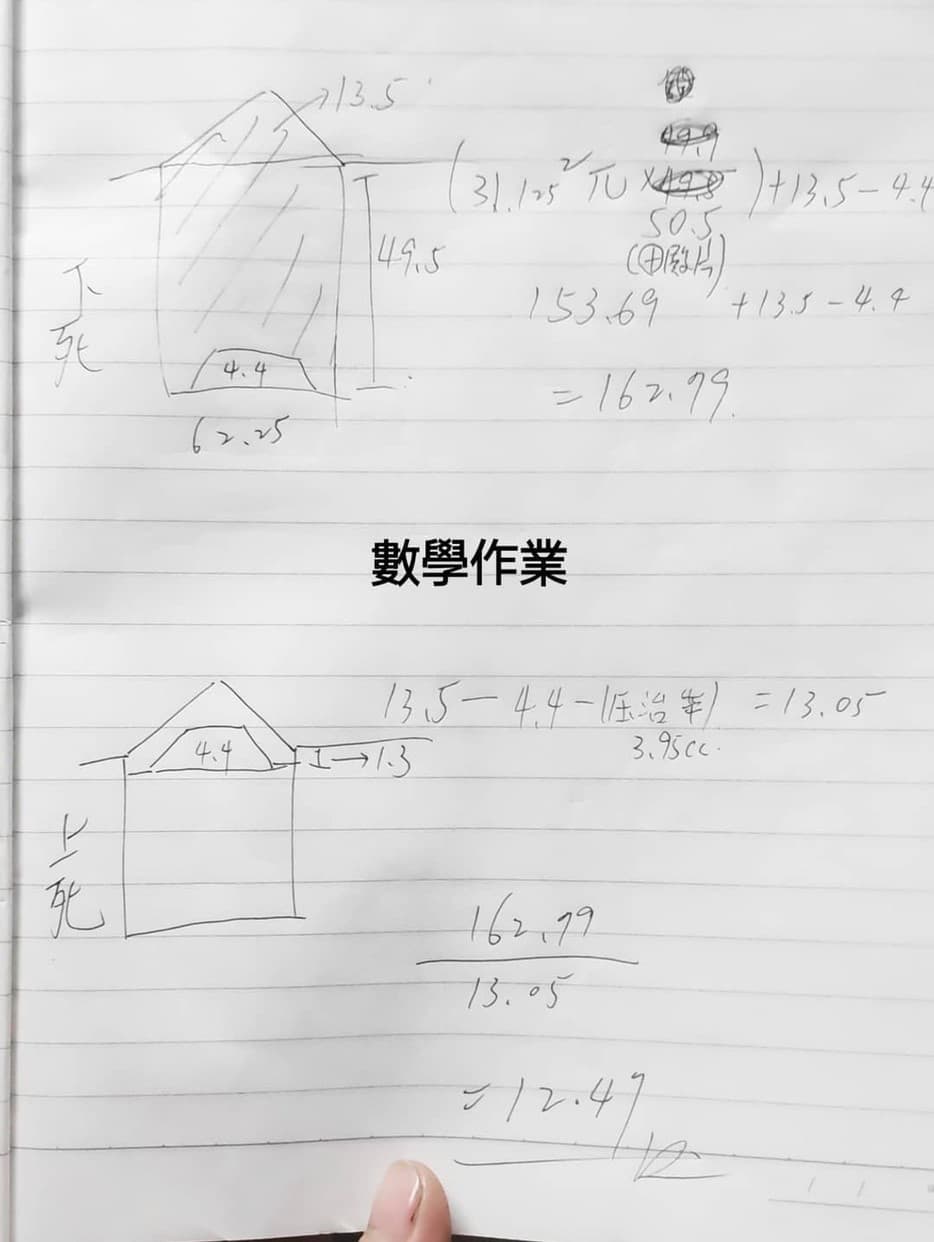 13.5
49.9
(31.125²π×49.8)+13.5-4.4
50.5
49.5
153.69 +13.5-4.4
下死
4.4
=162.79
62.25
數學作業
13.5-4.4- =13.05
3.95cc.
4.4
I→1.3
上死
162.79
13.05
=12.47